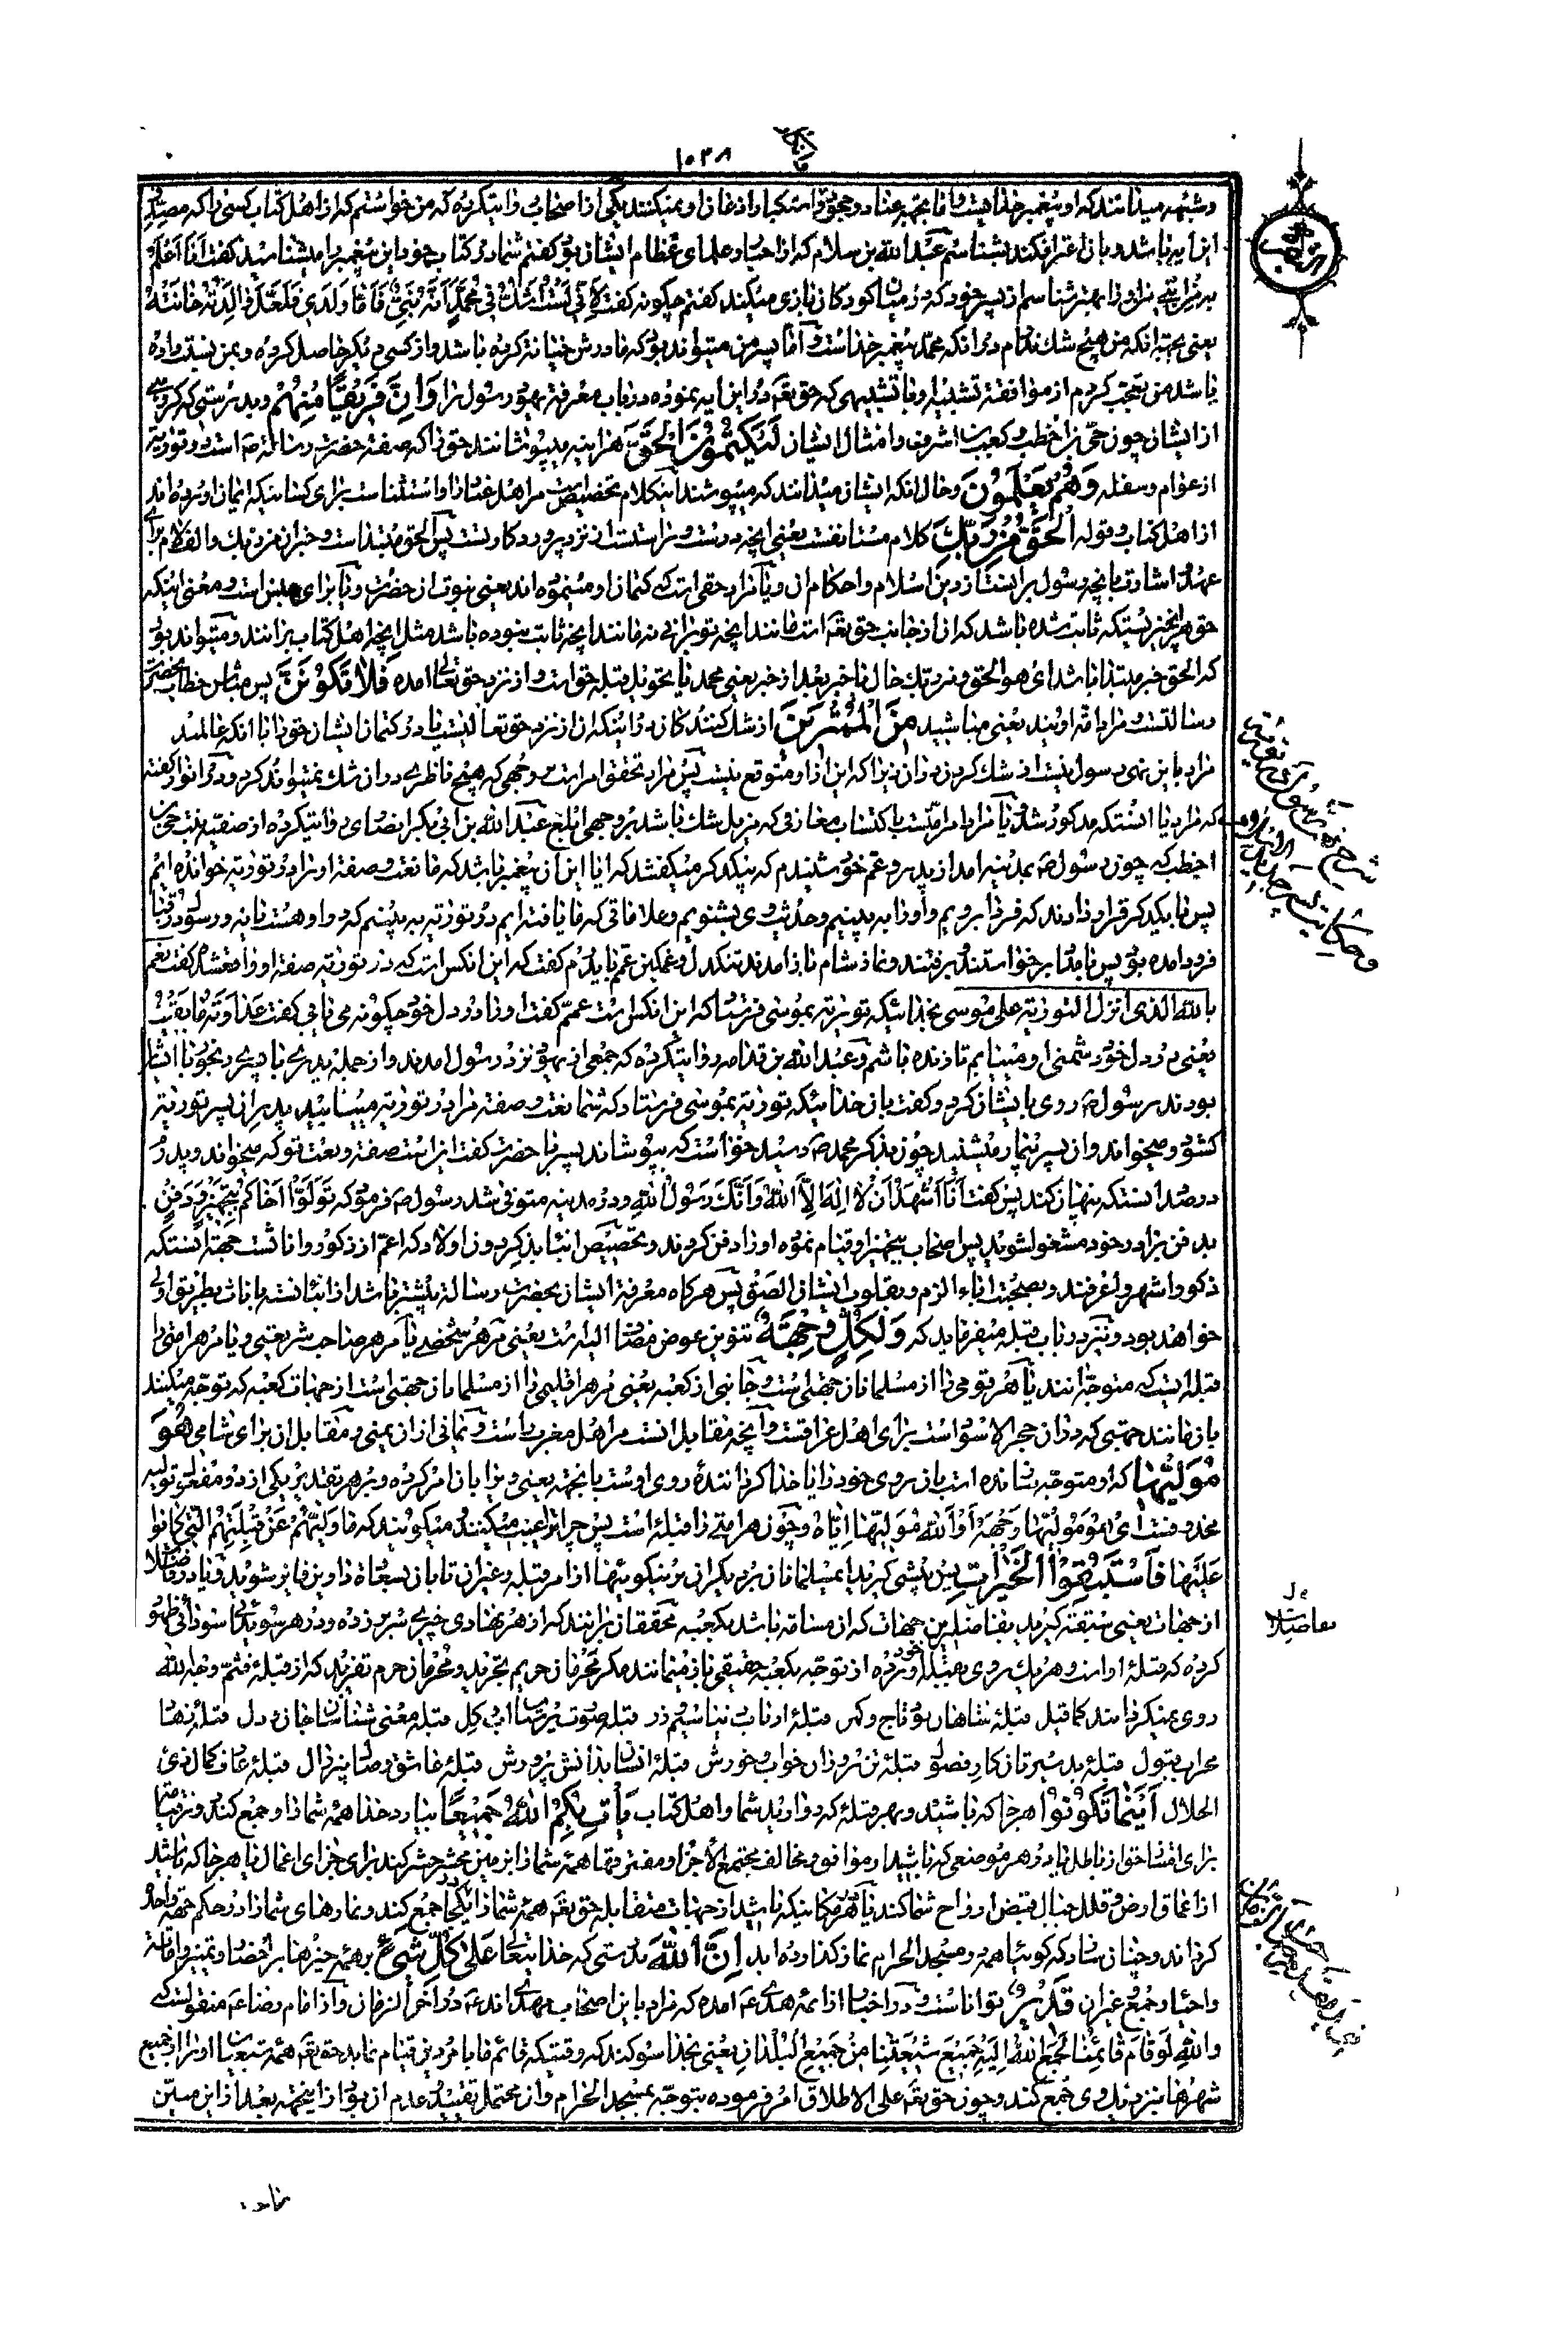 ۱۰۳۸
و شبهه میدانند که او پیغمبر خداهست و اما بجهة عناد و جحود و استکبار اذعان او نمیکنند یکی از اصحاب روایتکرده که من خواستم که از اهل کتاب کسی را که
این آیه باشد و بان اعتراف کند بشناسم عبد الله بن سلام که از احبار و علمای عظام ایشان بود گفتم شما در کتاب خود این پیغمبر را میشناسید گفت انا اعلم
به من او را بهتر شناسم از پسر خود که در میان کودکان بازی میکند گفتم چگونه گفت لانی لست اشك فی محمد انه نبی فاما ولدی فلعل والدته خانت
یعنی بجهة انکه من هیچ شك ندارم در انکه محمد پیغمبر خداست و اما پسر من میتواند بود که مادرش خیانة کرده باشد و از کسی دیگر حاصل کرده و بمن نسبت داده
باشد من تعجب کردم از موافقة تشبیه او با تشبیهی که حق تعه در این آیه نموده در باب معرفة یهود رسول را وَاِنَّ فَرِیقًا مِنْهُمْ و بدرستی که گروهی
از ایشان چون حی بن اخطب و کعب بن اشرف و امثال ایشان لَیَکْتُمُونَ الْحَقَّ هر اینه میپوشانند حق را که صفة حضرت رسالة ص است در توریة
از عوام و سفله وَهُمْ یَعْلَمُونَ و حال انکه ایشان میدانند که میپوشند اینکلام تخصیص مر اهل عناد را و استثناست برای کسانیکه ایمان اورده اند
از اهل کتاب و قوله الْحَقُّ مِنْ رَبِّكَ کلام مستانفست یعنی انچه درست و راستست از نزد پروردگار تست پس الحق مبتداست و خبر ان من ربك و الف لام برای
عهد و اشارت بانچه رسول بر انست از دین اسلام و احکام ان و یا مراد حقی است که کتمان او مینموده اند یعنی نبوت ان حضرت و یا برای جنس است و معنی اینکه
حق هر چیزیستکه ثابت شده باشد که ان از جانب حق تعه است مانند انچه تو برانی نه مانند انچه ثابت نبوده باشد مثل انچه اهل کتاب برانند و میتواند بود
که الحق خبر مبتدا باشد ای هو الحق و من ربك حال یا خبر بعد از خبر یعنی محمد یا تحویل قبله حق است و از نزد حق تعالی امده فَلَا تَکُونَنَّ پس مباش خطاب بحضرت
رسالتست و مراد امة اویند یعنی مباشید مِنَ الْمُمْتَرِینَ از شك کنندکان در اینکه ان از نزد حق تعالی نیست یا در کتمان ایشان حق را با انکه عالمند
مراد باین نهی رسول نیست از شك کردن در ان زیرا که این از او متوقع نیست پس مراد تحقق امر است بر وجهی که هیچ ناظری در ان شك نمیتواند کرد و در انوار گفته
که مراد یا انستکه مذکور شد یا مراد امر امتست باکتساب معارفی که مزیل شك باشد بر وجهی ابلغ عبد الله بن ابی بکر انصاری روایتکرده از صفیه بنت حی بن
اخطب که چون رسول ص بمدینه امد از پدر و عم خود شنیدم که بیکدیگر میگفتند که ایا این ان پیغمبر باشد که ما نعت و صفة او را در توریة خوانده ایم
پس با یکدیگر قرار دادند که فردا برویم و او را به بینیم و حدیث وی بشنویم و علاماتی که ما یافته ایم در توریة به بینیم که در او هست یا نه و رسول در قبا
فرود امده بود پس بامداد برخواستند برفتند و نماز شام باز امدند تنکدل و غمکین عم با پدرم گفت که این انکس است که در توریة صفة او را گفت نعم
بالله الذی انزل التوریة علی موسی بخدائیکه توریة بموسی فرستاد که این انکس است عمم گفت او را در دل خود چگونه می یابی گفت عداوته ما بقیت
یعنی در دل خود دشمنی او مییابم تا زنده باشم و عبد الله بن قدامه روایتکرده که جمعی از یهود نزد رسول امدند و از جمله پدری با پسر رنجوری با ایشان
بودند رسول ص روی بایشان کرد و گفت بان خدائیکه توریة بموسی فرستاد که شما نعت و صفة مرا در توریة مییابید پدر این پسر توریة
کشود و میخواند و ان پسر بیمار میشنید چون بذکر محمد ص رسید خواست که بپوشاند پسر با حضرت گفت اینست صفة و نعت تو که میخواند و پدر
در صدد انستکه پنهان کند پس گفت اَنَا اَشْهَدُ اَنْ لَا اِلٰهَ اِلَّا اللهُ وَاَنَّكَ رَسُولُ اللهِ و در مدینه متوفی شد رسول ص فرمود که تَوَلَّوْا اَخَاکُمْ بِتَجْهِیزٍ وَدَفْنٍ
بدفن برادر خود مشغول شوید پس اصحاب بتجهیز او قیام نموده او را دفن کردند و تخصیص ابنا بذکر دون اولاد که اعم از ذکور و اناثست جهة انستکه
ذکور اشهر و اعرفند و بصحبت اباء الزم و بقلوب ایشان الصق پس هرکاه معرفة ایشان بحضرت رسالة بیشتر باشد از ابنا نسبة باناث بطریق اولی
خواهد بود و نیز در باب قبله میفرماید که وَلِکُلٍّ وِجْهَةٌ تنوین عوض مضاف الیه است یعنی مر هر شخصی یا مر هر صاحب شریعتی و یا مر هر امتی را
قبله ایست که متوجه انند یا هر قومی را از مسلمانان جهتی است و جانبی از کعبه یعنی مر هر اقلیمی را از مسلمانان جهتی است از جهات کعبه که توجه میکنند
بان مانند جهتی که در ان حجر الاسود است برای اهل عراقست و انچه مقابل انست مر اهل مغرب راست و یمانی از ان یمنی و مقابل ان برای شامی هُوَ
مُوَلِّیهَا که او متوجه شونده است بان بروی خود را یا خدا گرداننده روی اوست بانجهة یعنی ویرا بان امر کرده و بر هر تقدیر یکی از دو مفعول تولیه
محذوفست ای هو مولیها وجهه او الله مولیها ایاه و چون هر امتی را قبله است پس چرا عیب میکنند میگویند که ما ولیهم عن قبلتهم التی کانوا
عَلَیْهَا فَاسْتَبِقُوا الْخَیْرَاتِ پس پیشی گیرید ای مسلمانان بر دیگران بر نیکوئیها از امر قبله و غیر ان تا بان بسعادة دارین فایز شوید و یا در
از جهات یعنی سبقة گیرید بفاضلترین جهات که ان مسامته باشد بکعبه محققان برانند که از هر نهادی خیری سر بر زده و در هر سویدائی سودائی ظهور
کرده که قبله او انست و هر یك روی بقبله خود اورده از توجه بکعبه حقیقی باز میمانند مگر محرمان حریم تجرید و محرمان حرم تفرید که از قبله فثم وجه الله
روی نمیگردانند کما قیل قبله شاهان بود تاج و کمر قبله ارباب
محراب قبول قبله بد سیرتان کار فضول قبله تن پروران خواب و خورش قبله انسان بدانش پرورش قبله عاشق وصال بیزوال قبله عارف کمال ذی
الجلال اَیْنَمَا تَکُونُوا هر جا که باشید و بهر قبله که رو اورید شما و اهل کتاب یَأْتِ بِکُمُ اللهُ جَمِیعًا بیاورد خدا همه شما را و جمع کند در قیامت
برای افشا حق از باطل یا در هر موضعی که باشید از موافق و مخالف مجتمع الاجزا و مفترقها همه شما را بزمین محشر حشر کند برای جزای اعمال یا هر جا که باشید
از اعماق ارض و قلل جبال قبض ارواح شما کند یا هر مکانیکه باشید از جهات متقابله حق تعه همه شما را یکجا جمع کند و نمازهای شما را در حکم جهة واحده
گرداند و چنان سازد که گوئیا همه در مسجد الحرام نماز گذارده اید اِنَّ اللهَ بدرستی که خدایتعالی عَلٰی کُلِّ شَیْءٍ بر همه چیزها
و احیا و جمع غیر ان قَدِیرٌ تواناست و در اخبار از ائمه هدی ع امده که مراد باین اصحاب مهدی اند ع در اخر الزمان و از امام رضا ع منقولست که
والله لو قام قائمنا لجمع الله الیه جمیع شیعتنا من جمیع البلدان یعنی بخدا سوگند که وقتیکه قائم ما بامر دین قیام نماید حق تعه همه شیعیان او را از جمیع
شهرها نزدیك وی جمع کند و چون حق تعه علی الاطلاق امر فرموده بتوجه بمسجد الحرام و ان محتمل تقیید و عدم ان بود از اینجهة بعد از این مبین